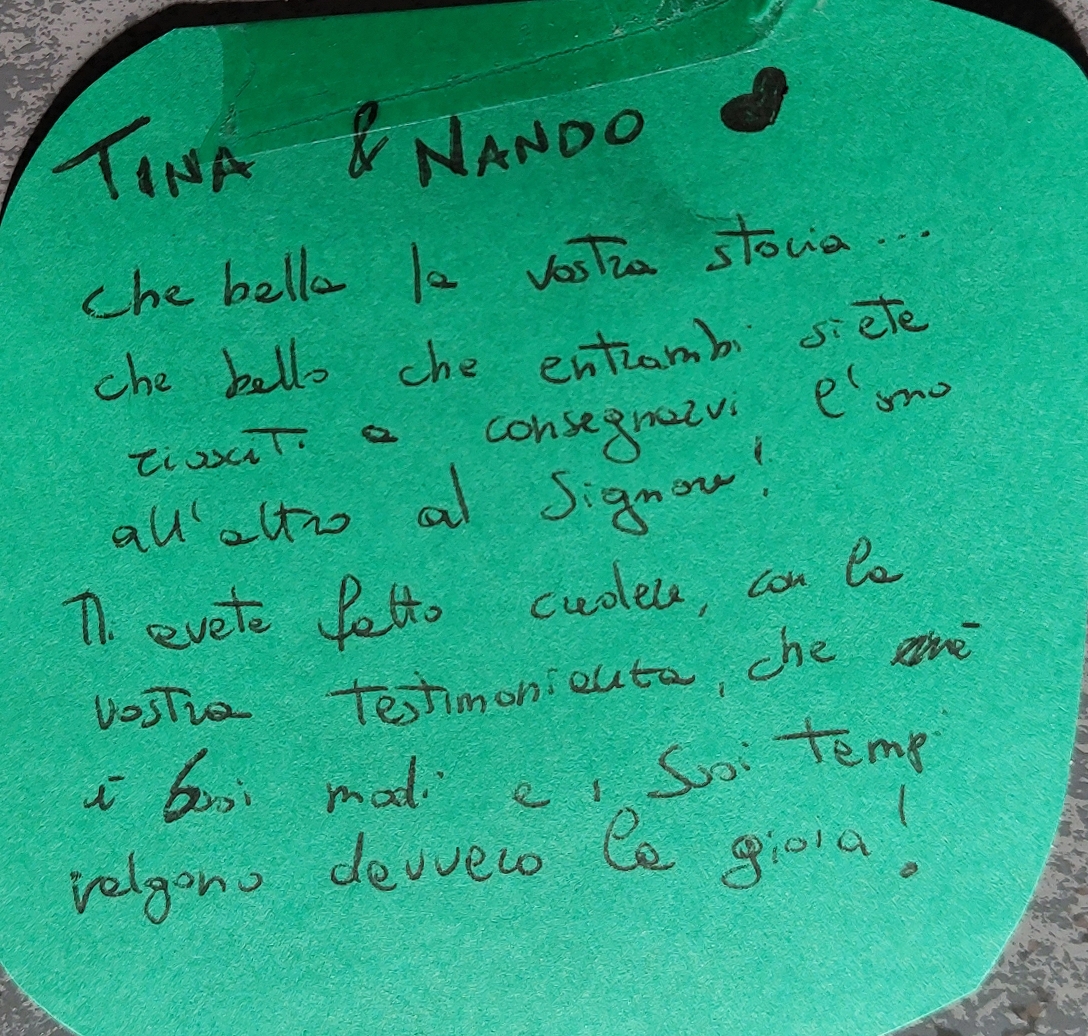 TINA & NANDO ♥
che bella la vostra storia...
che bello che entrambi siete
riusciti a consegnarvi l'uno
all'altro al Signore!
Mi avete fatto credere, con la
vostra testimonianza, che
i Suoi modi e i Suoi tempi
valgono davvero la gioia!